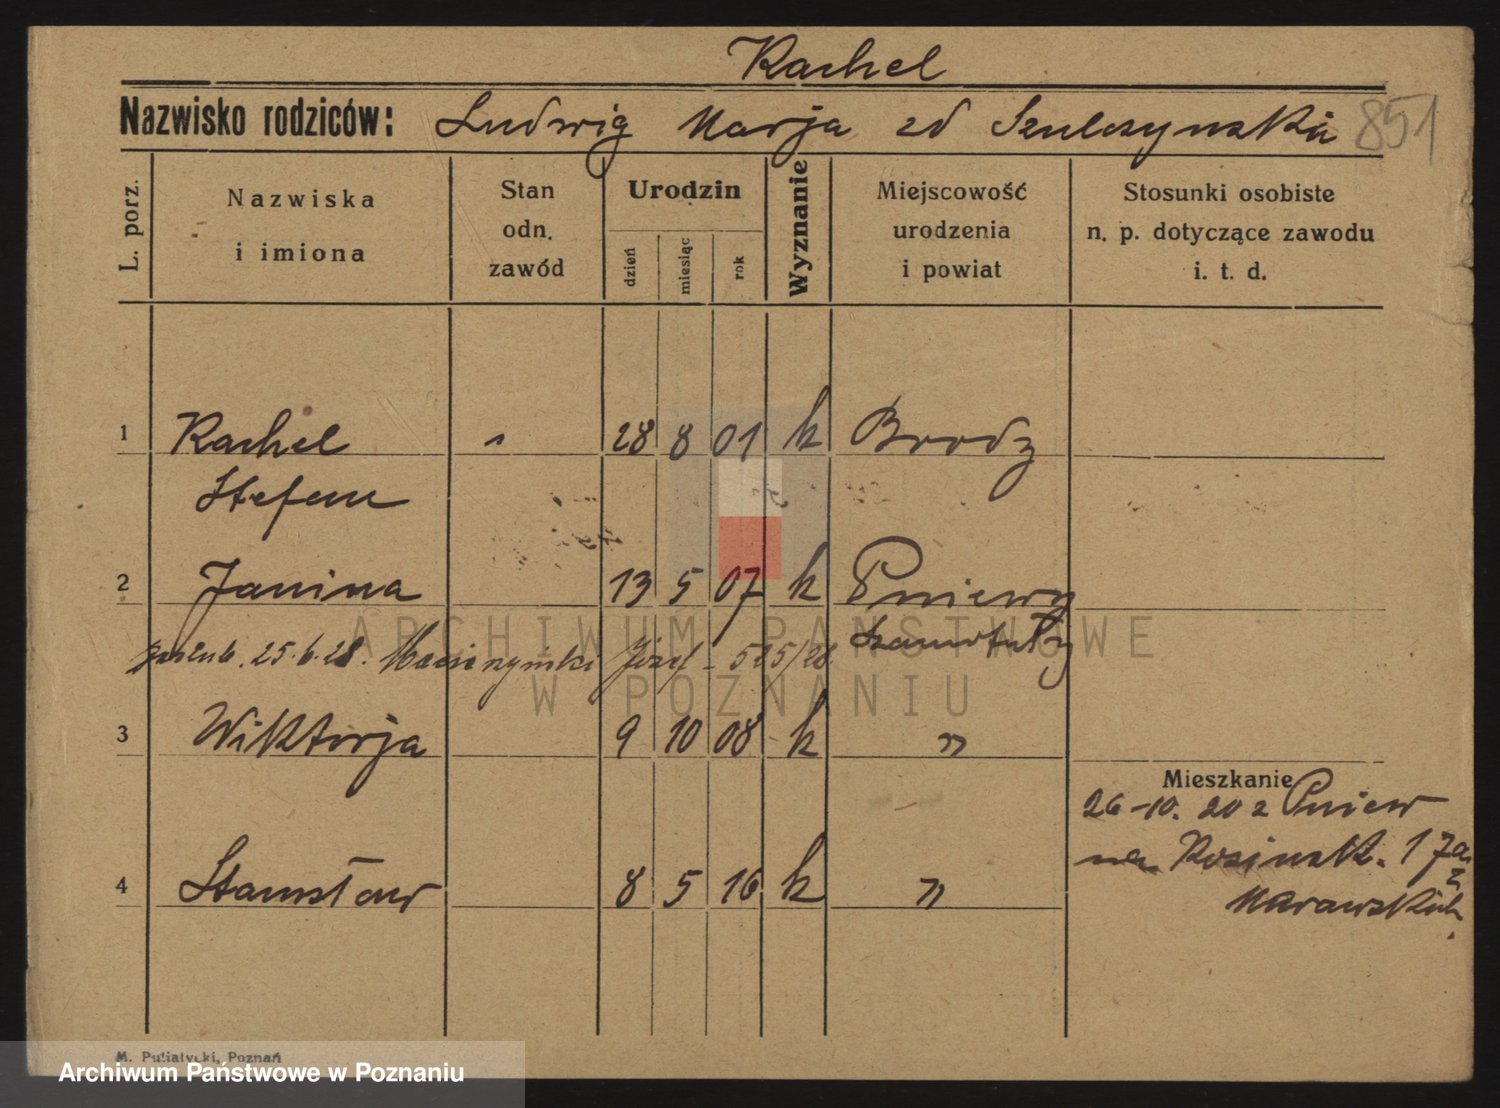 Rachel
Nazwisko rodziców: Ludwig Marja zd Szulczynskich 851
L. porz.
Nazwiska
i imiona
Stan
odn.
zawód
Urodzin
dzień
miesiąc
rok
Wyznanie
Miejscowość
urodzenia
i powiat
Stosunki osobiste
n. p. dotyczące zawodu
i. t. d.
1 Rachel " 28 8 01 k Brody
Stefan
2 Janina 13 5 07 k Pniewy
Szamotuły
zaślub. 25.6.28. Józef - 515/28
3 Wiktorja 9 10 08 k "
Mieszkanie
26-10. 20 z Pniew
na 1
4 Stanisław 8 5 16 k "
M. Putiatycki, Poznań
ARCHIWUM PAŃSTWOWE
W POZNANIU
Archiwum Państwowe w Poznaniu